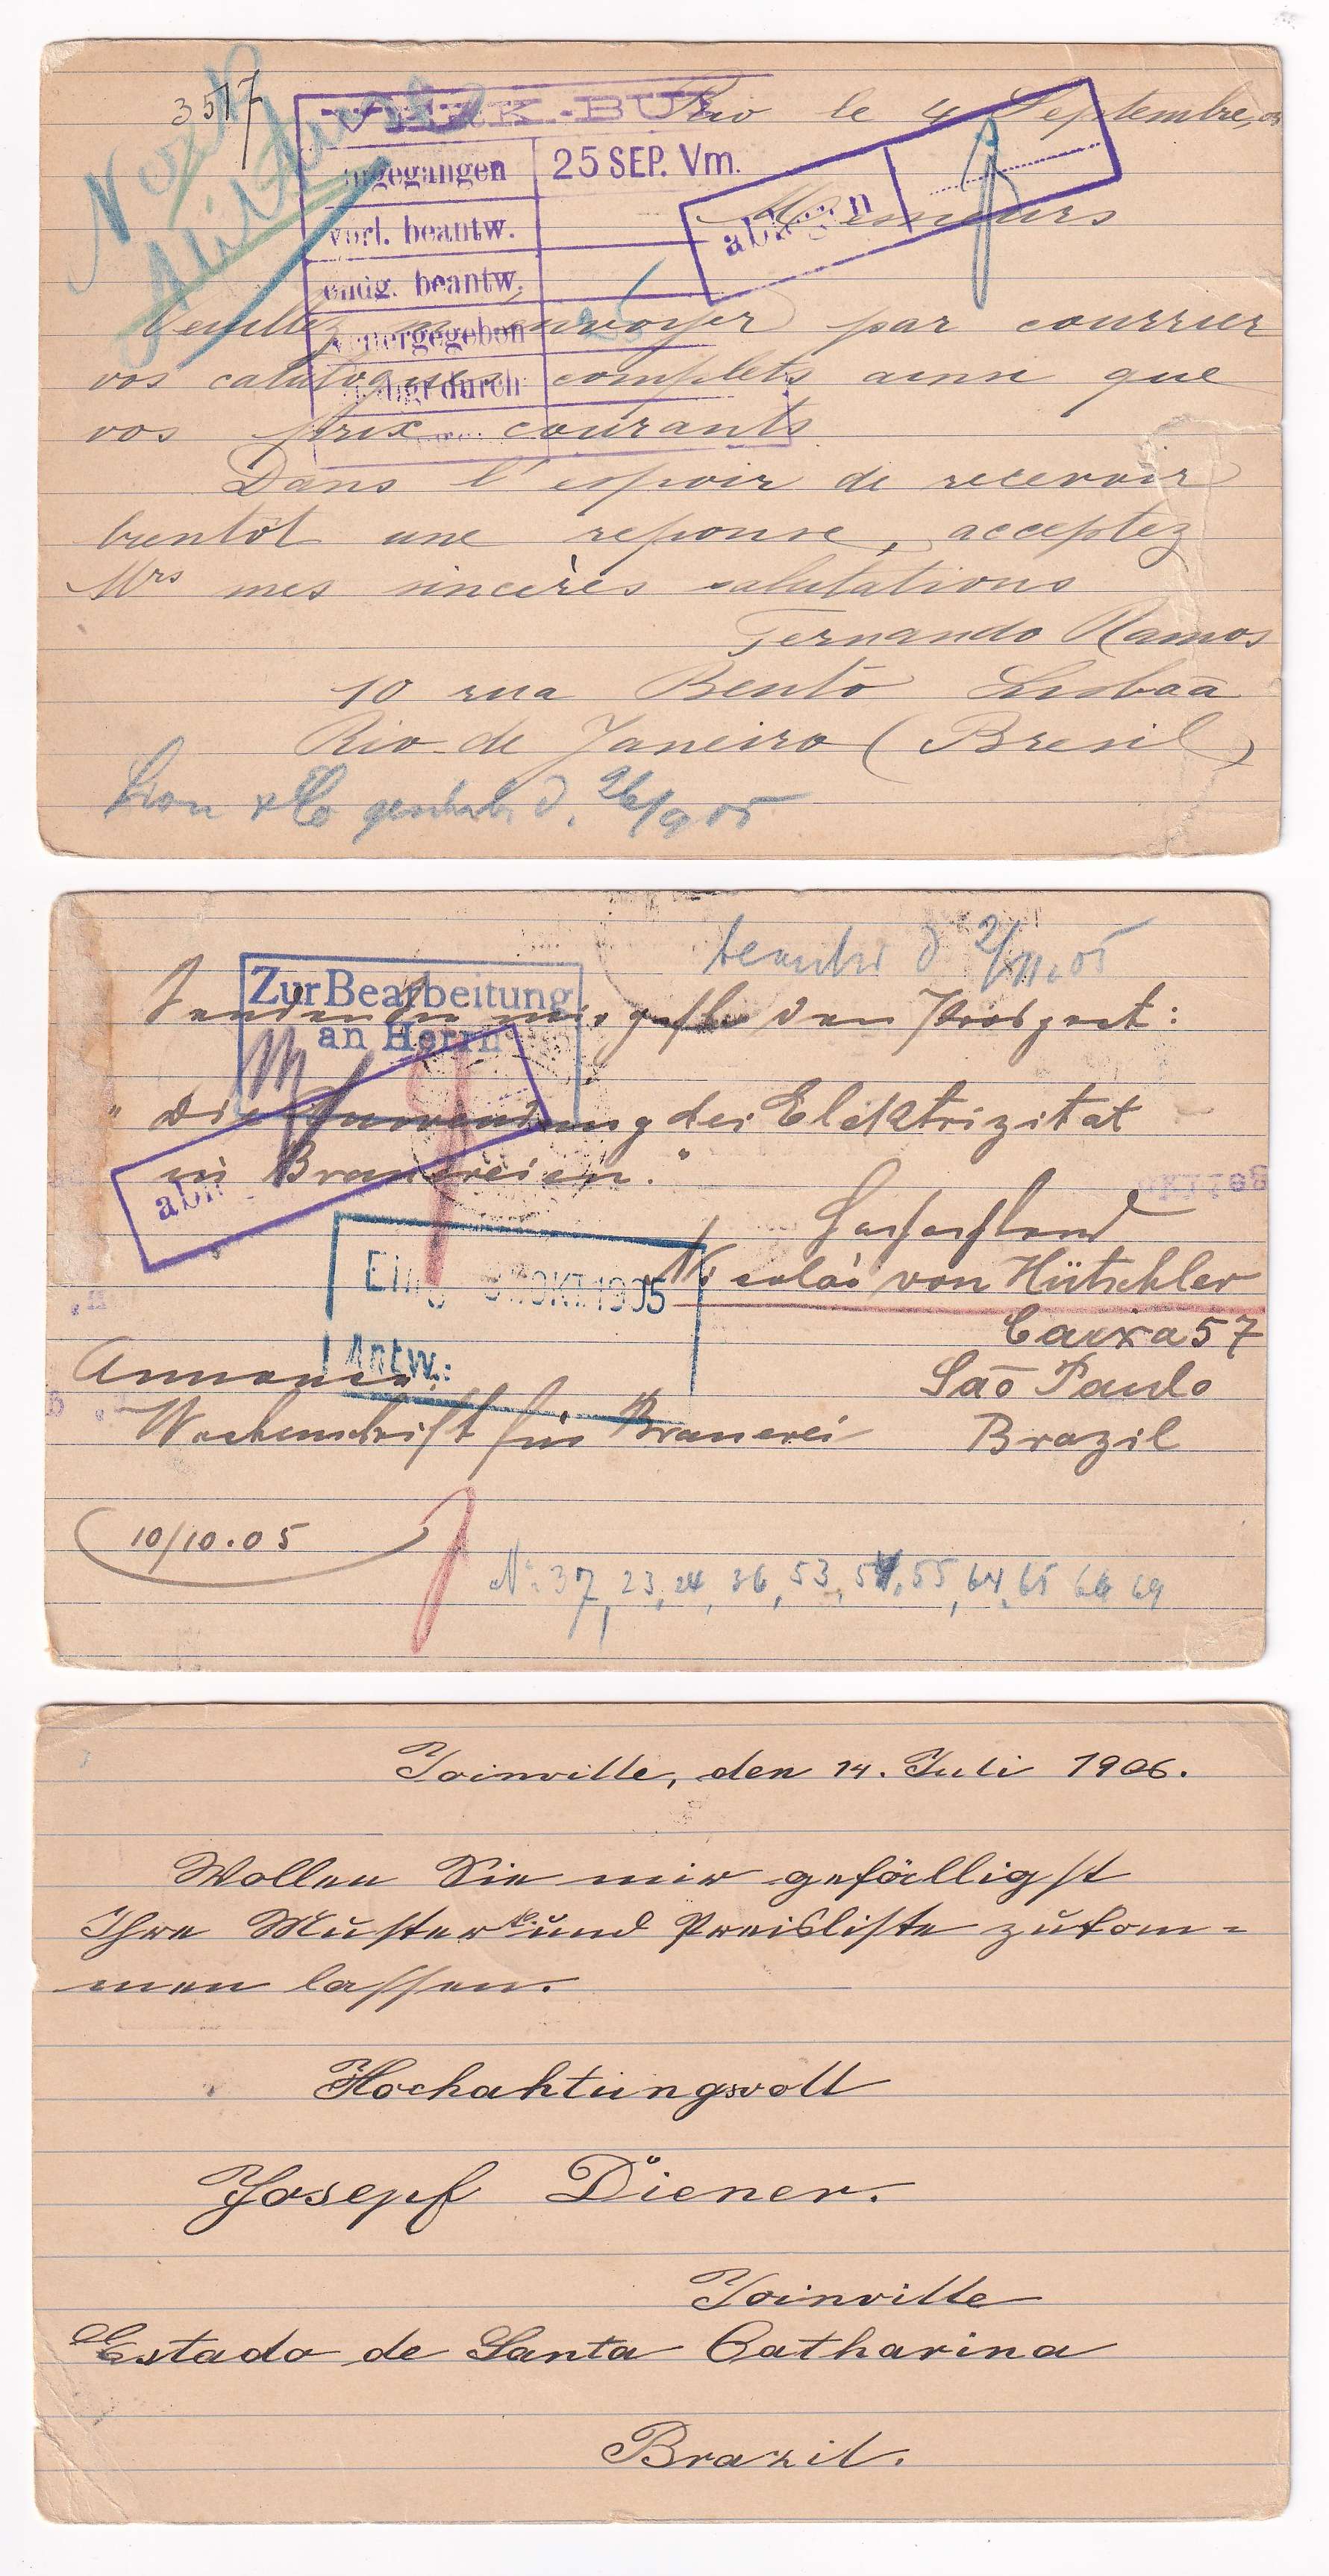 3517
Rio le 4 Septembre, 05
VERK.-BUR
25 SEP. Vm.
ngegangen
vorl. beantw.
endg. beantw.
Messieurs
Veuillez m'envoyer par courrier
vos catalogues complets ainsi que
vos prix courants
Dans l'espoir de recevoir
bientôt une reponse, acceptez
Mrs mes sincères salutations
Fernando Ramos
10 rua Bento Lisbôa
Rio de Janeiro (Bresil)
26/9 05
2/11.05
Zur Bearbeitung
an Herrn
Senden Sie mir gefl. den Prospect:
"Die Anwendung der Elektrizität
in Brauereien."
Hochachtend
Nicolai von Hütschler
Caixa 57
São Paulo
Brazil
OKT. 1905
Antw.:
Annonce
Wochenschrift für Brauerei
10/10.05
No: 37, 23, 24, 36, 53, 54, 55, 64, 65 66 69
Joinville, den 14. Juli 1906.
Wollen Sie mir gefälligst
Ihre Muster und Preisliste zukom=
men lassen.
Hochahtungsvoll
Josepf Diener.
Joinville
Estado de Santa Catharina
Brazil.